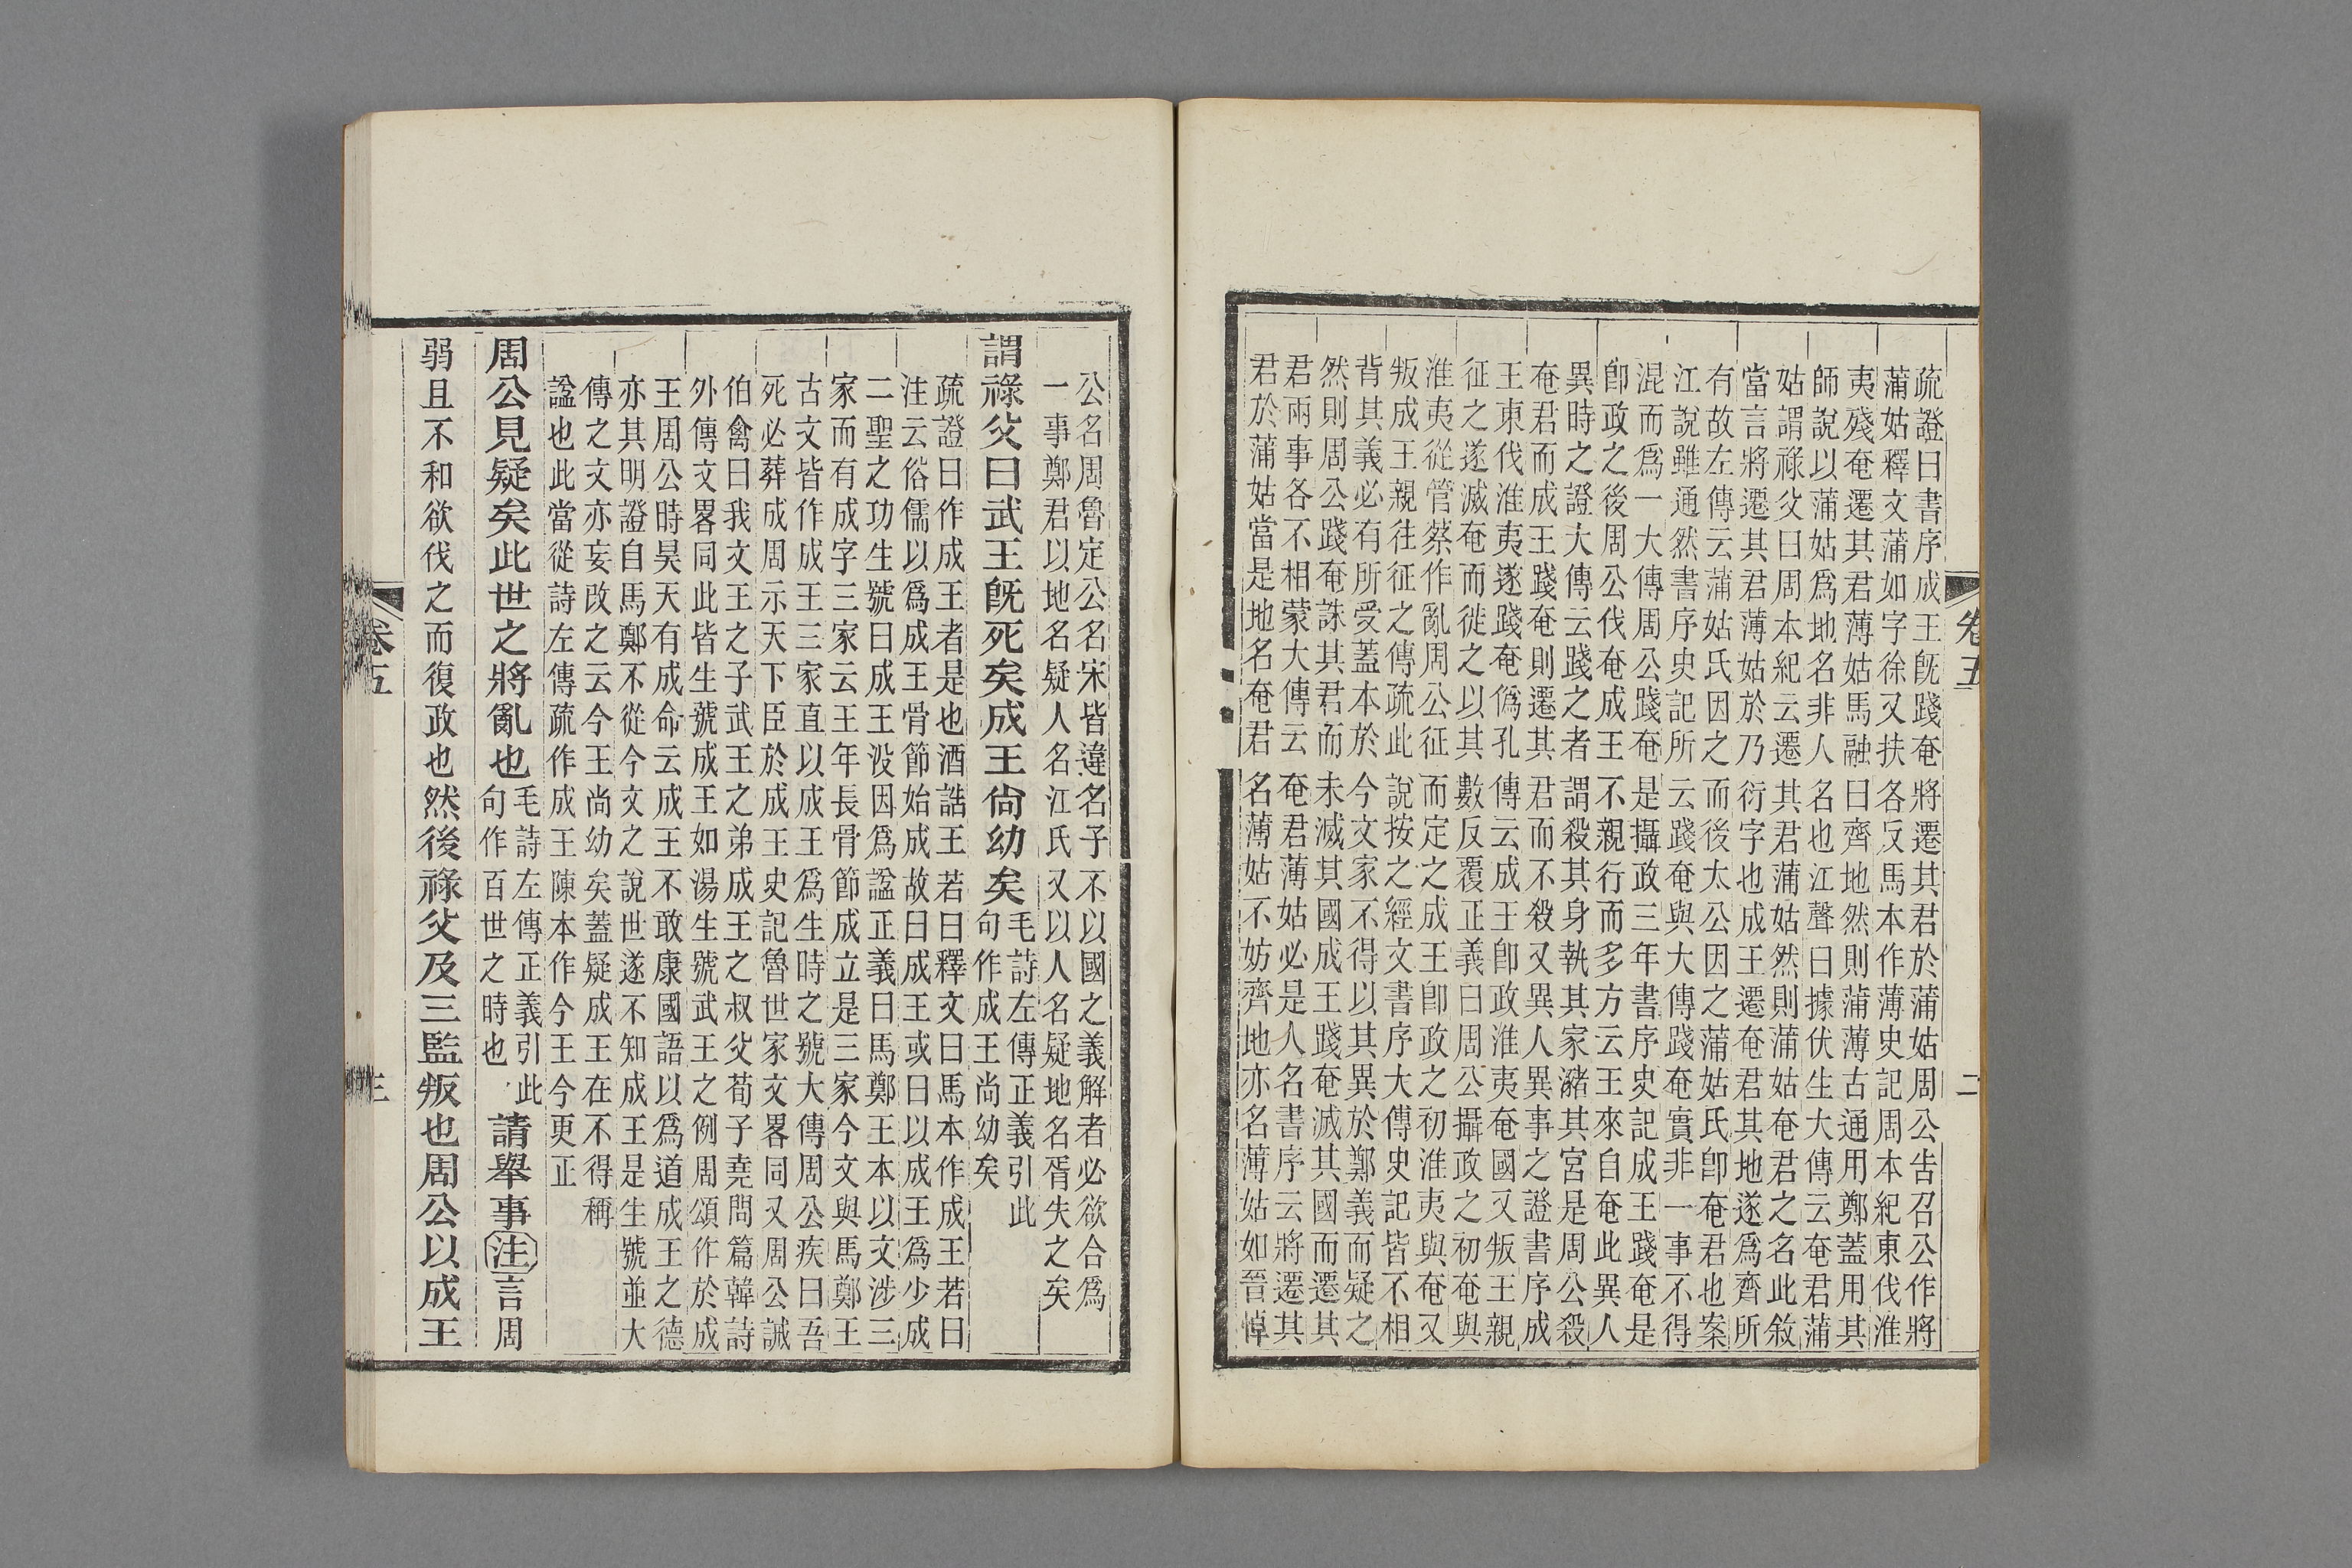 疏證曰書序成王旣踐奄將遷其君於蒲姑周公告召公作將
蒲姑釋文蒲如字徐又扶各反馬本作薄史記周本紀東伐淮
夷殘奄遷其君薄姑馬融曰齊地然則蒲薄古通用鄭蓋用其
師說以蒲姑爲地名非人名也江聲曰據伏生大傳云奄君蒲
姑謂祿父曰周本紀云遷其君蒲姑然則蒲姑奄君之名此敘
當言將遷其君薄姑於乃衍字也成王遷奄君其地遂爲齊所
有故左傳云蒲姑氏因之而後太公因之蒲姑氏卽奄君也案
江說雖通然書序史記所云踐奄與大傳踐奄實非一事不得
混而爲一大傳周公踐奄是攝政三年書序史記成王踐奄是
卽政之後周公伐奄成王不親行而多方云王來自奄此異人
異時之證大傳云踐之者謂殺其身執其家瀦其宮是周公殺
奄君而成王踐奄則遷其君而不殺又異人異事之證書序成
王東伐淮夷遂踐奄僞孔傳云成王卽政淮夷奄國又叛王親
征之遂滅奄而徙之以其數反覆正義曰周公攝政之初奄與
淮夷從管蔡作亂周公征而定之成王卽政之初淮夷與奄又
叛成王親往征之傳疏此說按之經文書序大傳史記皆不相
背其義必有所受蓋本於今文家不得以其異於鄭義而疑之
然則周公踐奄誅其君而未滅其國成王踐奄滅其國而遷其
君兩事各不相蒙大傳云奄君薄姑必是人名書序云將遷其
君於蒲姑當是地名奄君名薄姑不妨齊地亦名薄姑如晉悼
卷五
二
公名周魯定公名宋皆違名子不以國之義解者必欲合爲
一事鄭君以地名疑人名江氏又以人名疑地名胥失之矣
謂祿父曰武王旣死矣成王尙幼矣毛詩左傳正義引此
句作成王尚幼矣
疏證曰作成王者是也酒誥王若曰釋文曰馬本作成王若曰
注云俗儒以爲成王骨節始成故曰成王或曰以成王爲少成
二聖之功生號曰成王没因爲諡正義曰馬鄭王本以文涉三
家而有成字三家云王年長骨節成立是三家今文與馬鄭王
古文皆作成王三家直以成王爲生時之號大傳周公疾曰吾
死必葬成周示天下臣於成王史記魯世家文畧同又周公誡
伯禽曰我文王之子武王之弟成王之叔父荀子堯問篇韓詩
外傳文畧同此皆生號成王如湯生號武王之例周頌作於成
王周公時昊天有成命云成王不敢康國語以爲道成王之德
亦其明證自馬鄭不從今文之說世遂不知成王是生號並大
傳之文亦妄改之云今王尚幼矣蓋疑成王在不得稱
諡也此當從詩左傳疏作成王陳本作今王今更正
周公見疑矣此世之將亂也毛詩左傳正義引此
句作百世之時也請舉事注言周
弱且不和欲伐之而復政也然後祿父及三監叛也周公以成王
卷五
三